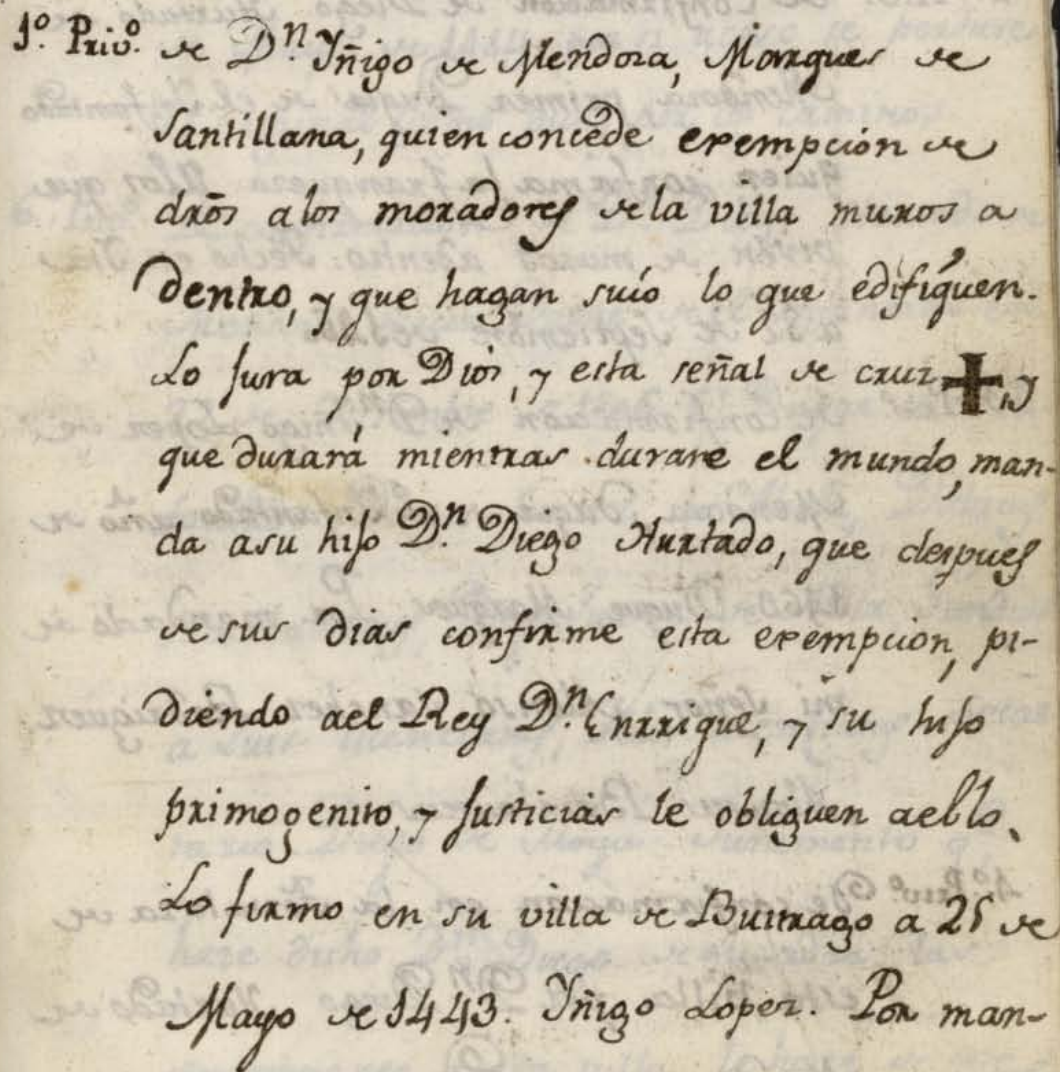 1º. Privº. de Dⁿ. Yñigo de Mendoza, Marques de
Santillana, quien concede exempción de
drõs a los moradores de la villa muros a
dentro, y que hagan suio lo que edifiquen.
Lo Jura por Dios, y esta señal de cruz ✝, y
que durará mientras durare el mundo, man-
da a su hijo Dⁿ. Diego Hurtado, que despues
de sus dias confirme esta exempcion, pi-
diendo ael Rey Dⁿ. Enrrique, y su hijo
primogenito, y Justicias le obliguen aello.
Lo firmo en su villa de Buitrago a 25 de
Mayo de 1443. Yñigo Lopez. Por man-